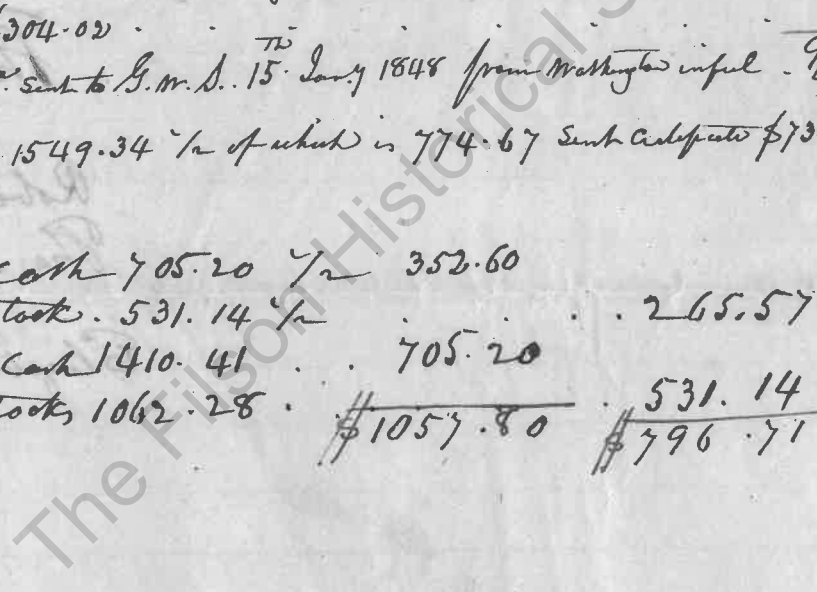 304.02
Sent to G.W.S. 15th Jany 1848 from Washington in full.
1549.34 1/2 of which is 774.67 Sent Certificate $73
Cash 705.20 1/2 352.60
tock. 531.14 1/2 . . . . 265.57
Cash 1410.41 . . 705.20
tocks 1062.28 . . . 531.14
$1057.80 $796.71
The Filson Historical S